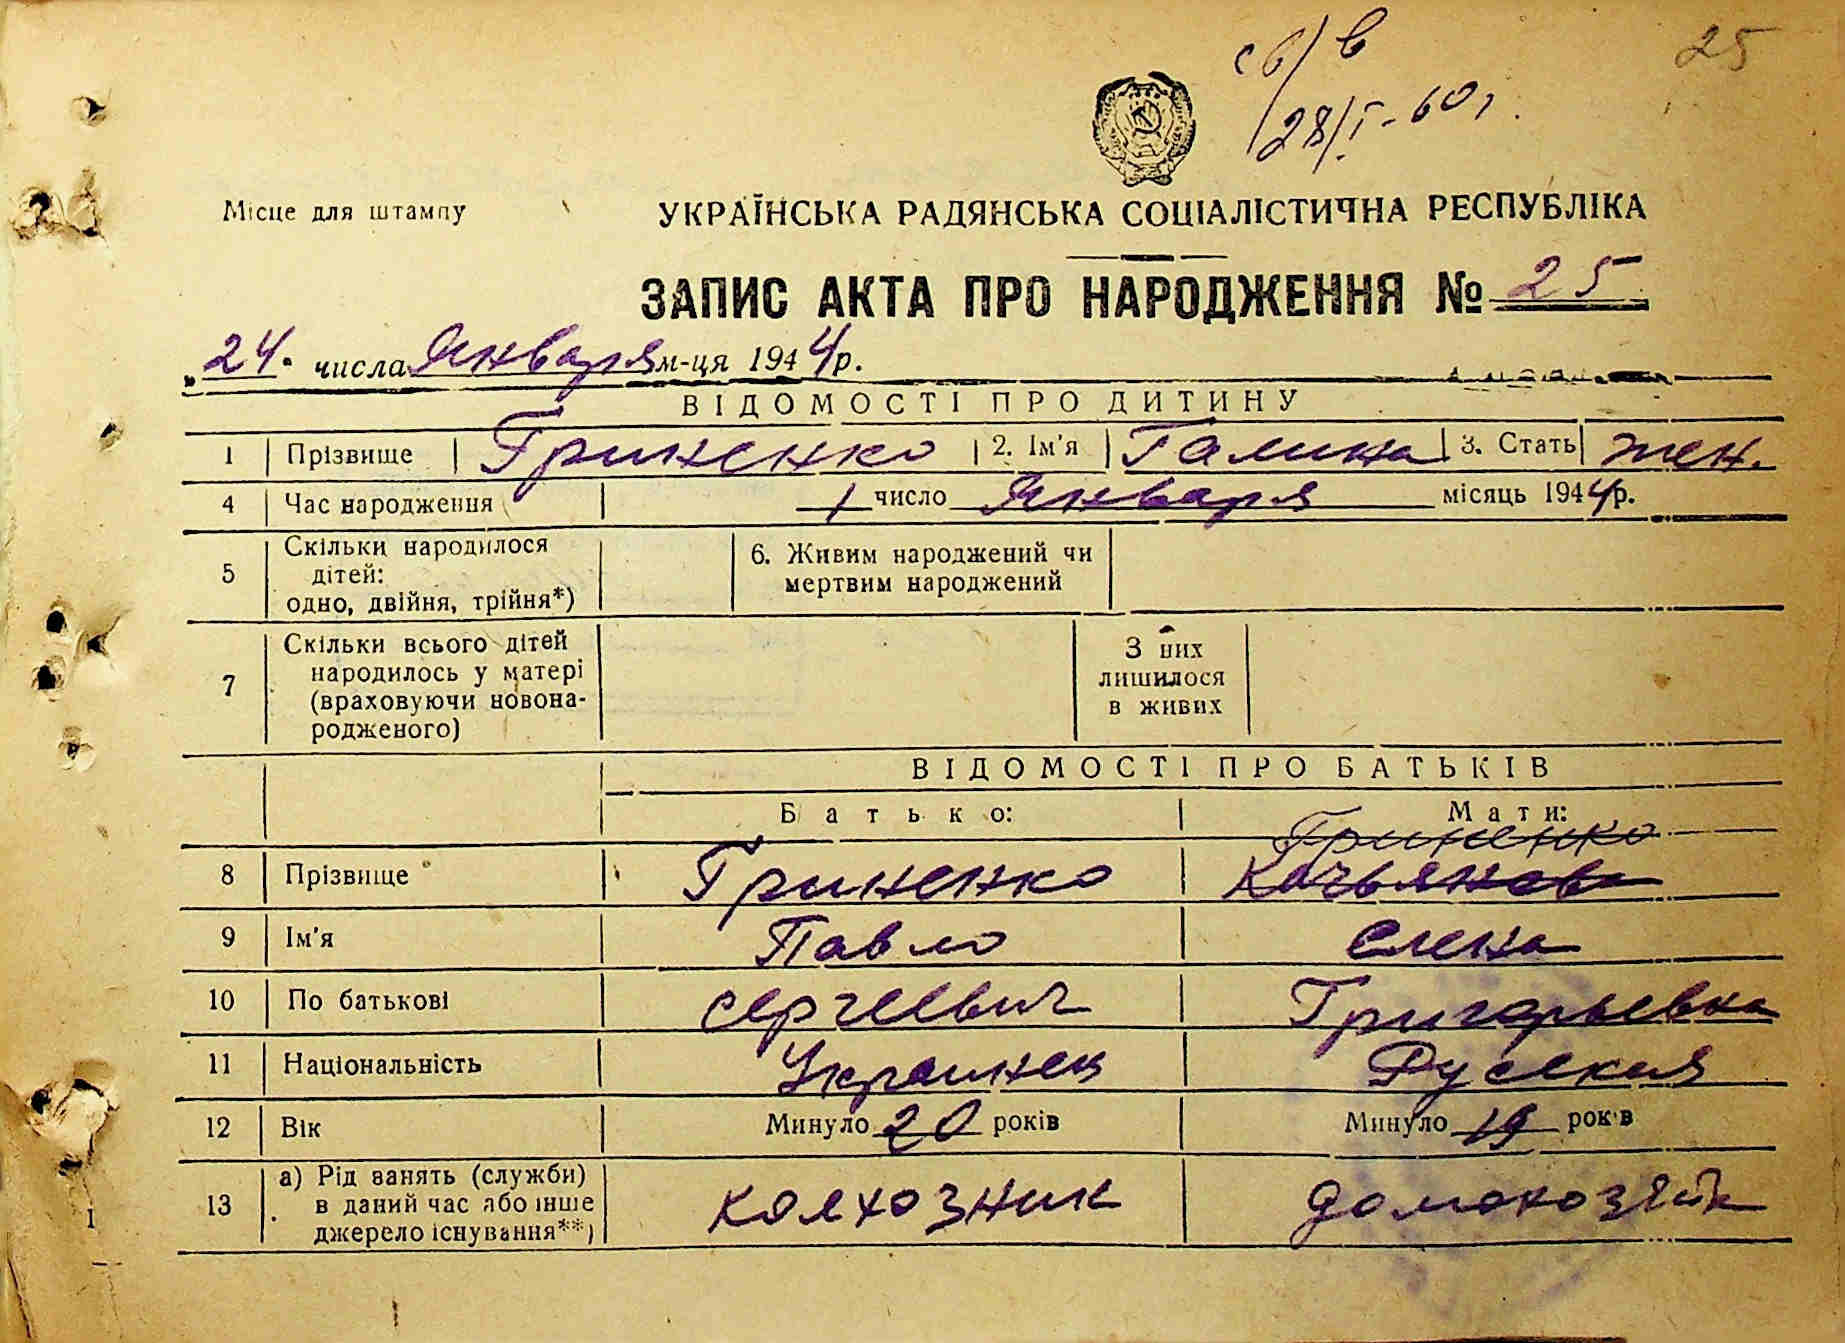 25
св/в
28/I-60 г.
Місце для штампу
УКРАЇНСЬКА РАДЯНСЬКА СОЦІАЛІСТИЧНА РЕСПУБЛІКА
ЗАПИС АКТА ПРО НАРОДЖЕННЯ № 25
„24" числа Января м-ця 1944 р.
ВІДОМОСТІ ПРО ДИТИНУ
1 Прізвище Гриненко 2. Ім'я Галина 3. Стать жен.
4 Час народження 1 число Января місяць 1944 р.
5 Скільки народилося дітей: одно, двійня, трійня*) 6. Живим народжений чи мертвим народжений
7 Скільки всього дітей народилось у матері (враховуючи новонародженого) З них лишилося в живих
ВІДОМОСТІ ПРО БАТЬКІВ
Батько: Мати:
Гриненко
8 Прізвище Гриненко
9 Ім'я Павло Елена
10 По батькові Сергеевич Григорьевна
11 Національність Украинец Руская
12 Вік Минуло 20 років Минуло 19 років
13 а) Рід занять (служби) в даний час або інше джерело існування**) колхозник
1